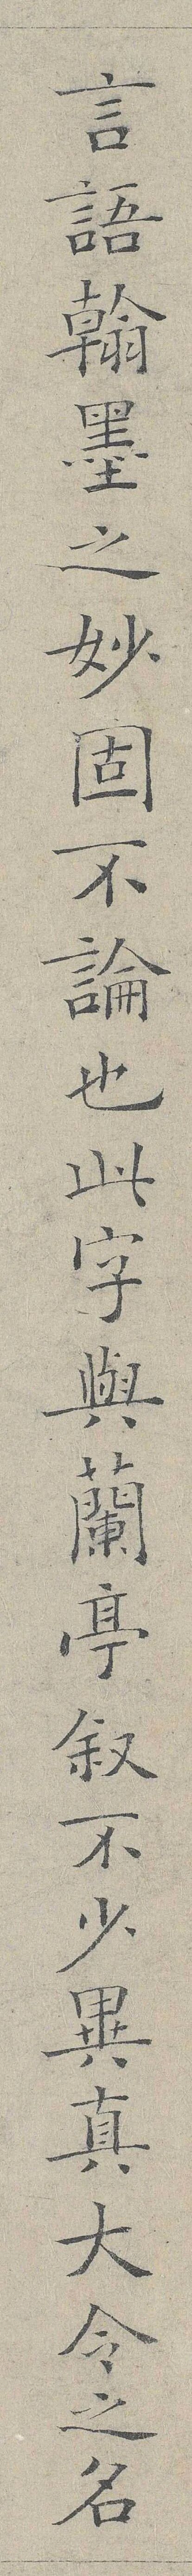 言語翰墨之妙固不論也此字與蘭亭叙不少異真大令之名